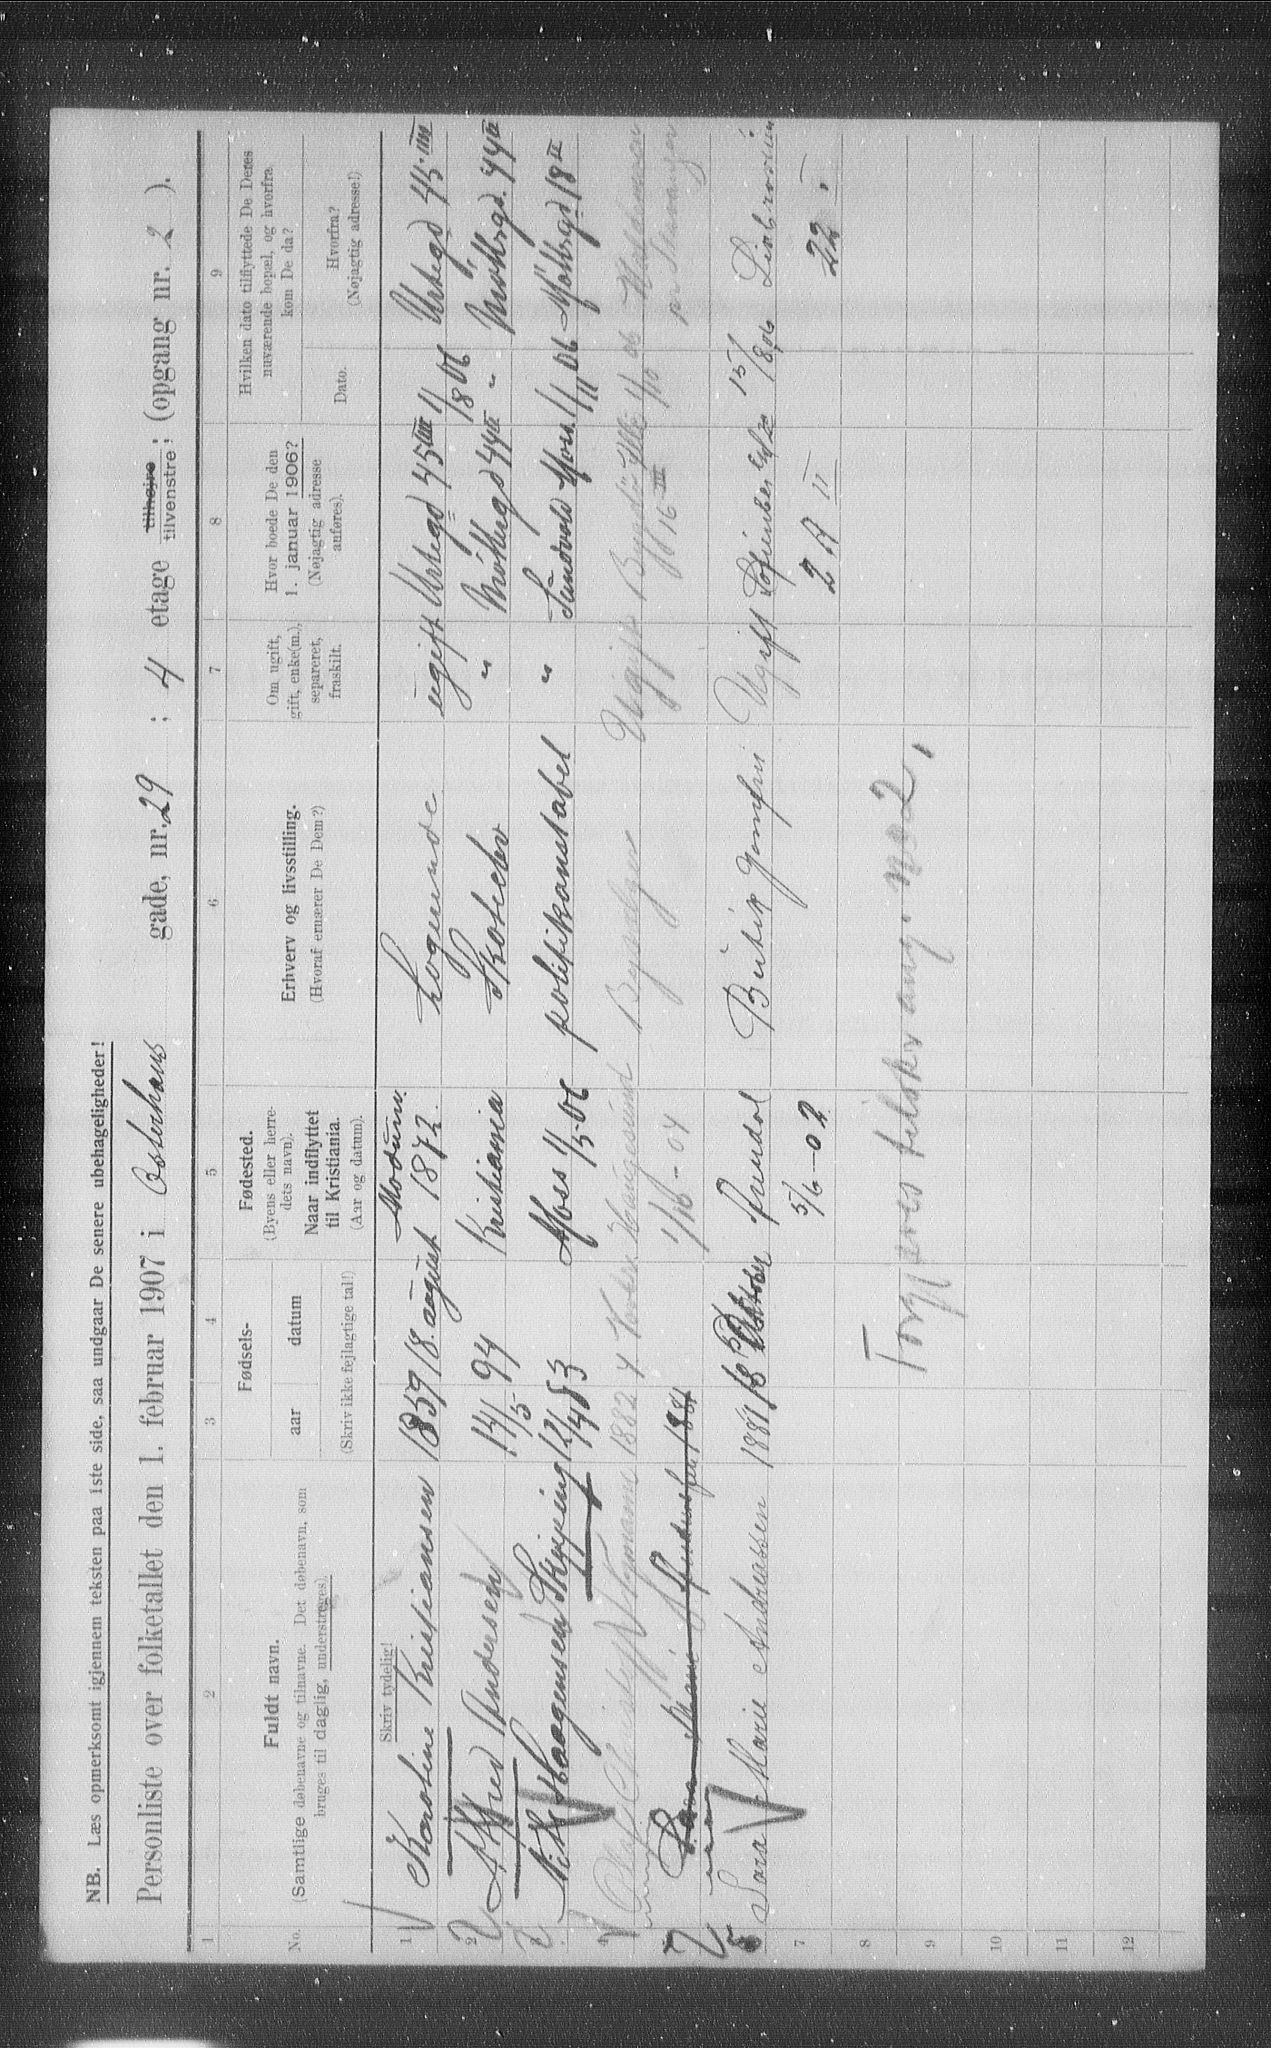 NB. Læs opmerksomt igjennem teksten paa 1ste side, saa undgaar De senere ubehageligheder!
Personliste over folketallet den 1. februar 1907 i Osterhaus gade, nr. 29 ; 4 etage tilhøjre tilvenstre; (opgang nr. 2 ).
1 2 3 4 5 6 7 8 9
No.
Fuldt navn.
(Samtlige døbenavne og tilnavne. Det døbenavn, som
bruges til daglig, understreges).
Fødsels-
aar datum
(Skriv ikke fejlagtige tal!)
Fødested.
(Byens eller herre-
dets navn).
Naar indflyttet
til Kristiania.
(Aar og datum).
Erhverv og livsstilling.
(Hvoraf ernærer De Dem?)
Om ugift,
gift, enke(m.),
separeret,
fraskilt.
Hvor boede De den
1. januar 1906?
(Nøjagtig adresse
anføres).
Hvilken dato tilflyttede De Deres
nuværende bopæl, og hvorfra
kom De da?
Dato.
Hvorfra?
(Nøjagtig adresse!)
Skriv tydelig!
1 Karoline Kristiansen 1859 18. august Modum. 1872. Logerende ugift Urtegd 45 IIII 1/8 06 Urtegd 45. IIII
2 Alfred Andersen 14/5 94 Kristiania Skoleelev " Möllergd 44 II " Möllergd. 44 II
3 Nils Haagensen Skjeping 12/4 83 Moss 1/5 06 politikonstabel " Sandvold Moss. 1/11 06 Möllergd 18 II
4 Olaf Christoffer 1882 4 Haugesund Ugift Bygdö Alle 1/10 06
1/10 - 04 16 III Stavanger
5 Marie 1881
6 Sara Marie Andreassen 1881 18 Oktober Butik Ugift 15/8 06
5/6 - 02 2 A II 22 I
7
8
9
10
11
12